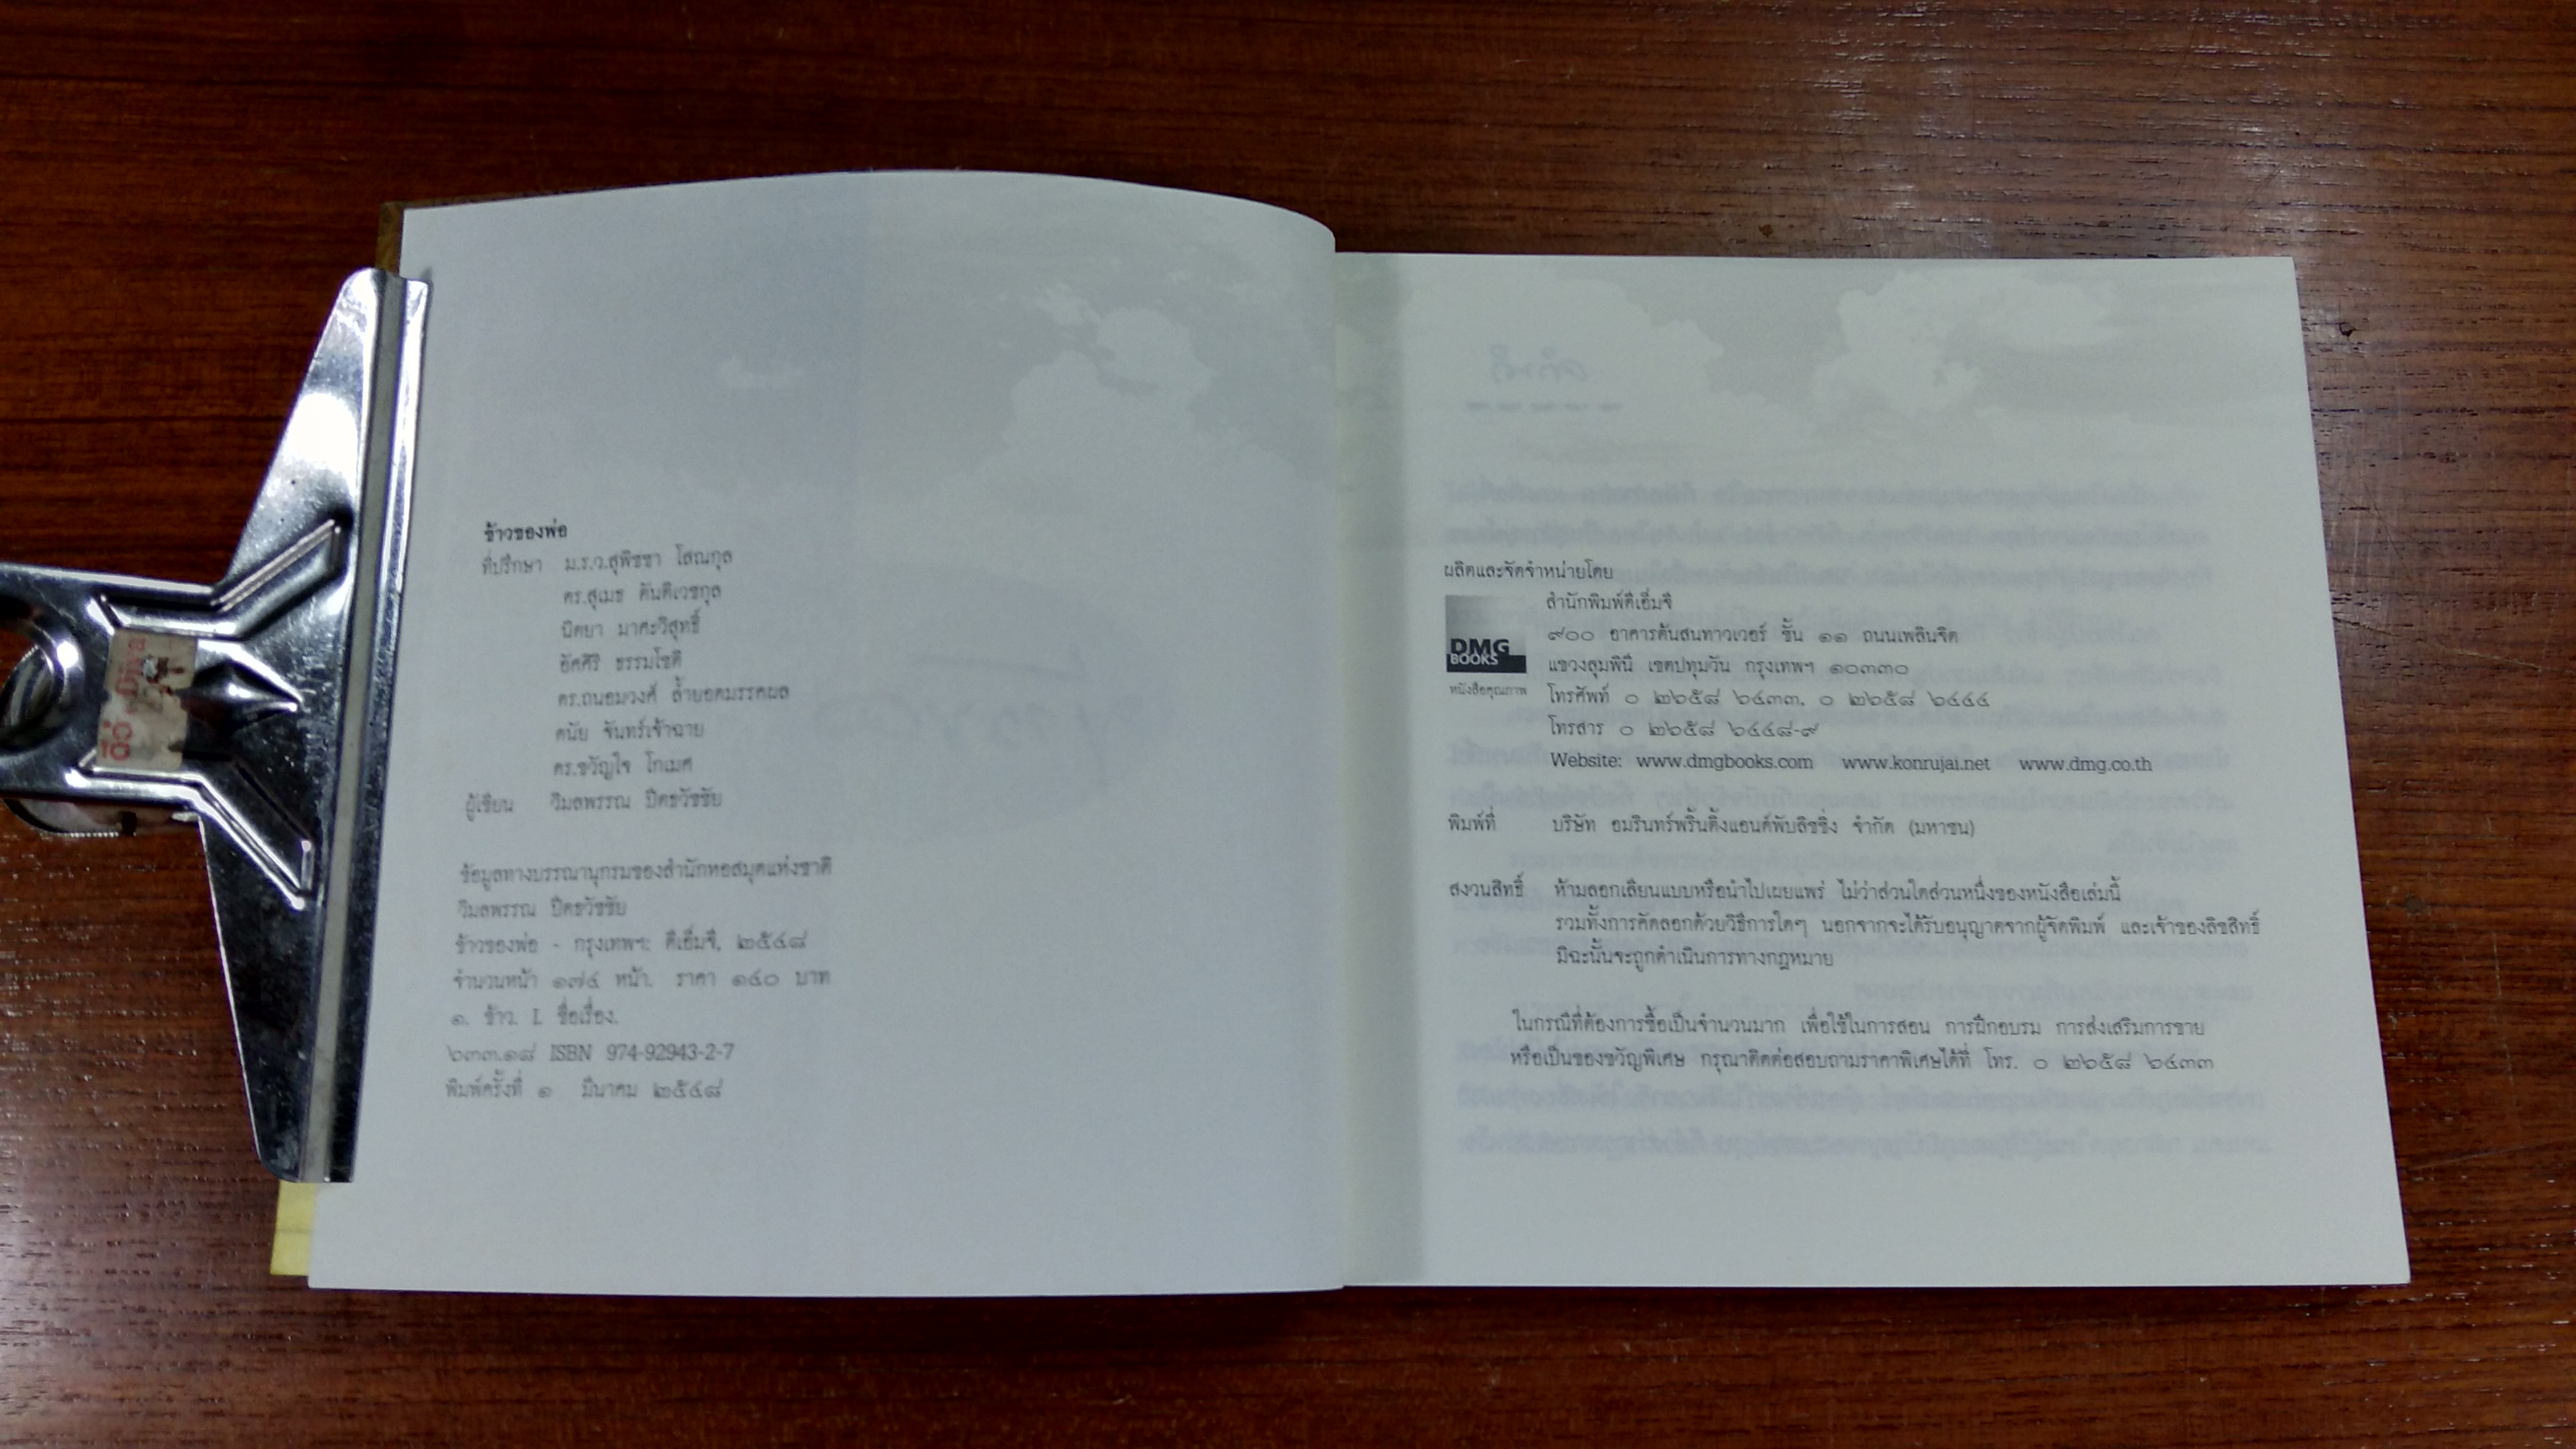 ข้าวของพ่อ
ที่ปรึกษา ม.ร.ว.สุพิชชา โสณกุล
ดร.สุเมธ ตันติเวชกุล
นิตยา มาศะวิสุทธิ์
อัศศิริ ธรรมโชติ
ดร.ถนอมวงศ์ ล้ำยอดมรรคผล
ดนัย จันทร์เจ้าฉาย
ดร.ขวัญใจ โกเมศ
ผู้เขียน วิมลพรรณ ปีตธวัชชัย
ข้อมูลทางบรรณานุกรมของสำนักหอสมุดแห่งชาติ
วิมลพรรณ ปีตธวัชชัย
ข้าวของพ่อ - กรุงเทพฯ: ดีเอ็มจี, ๒๕๔๘
จำนวนหน้า ๑๗๔ หน้า. ราคา ๑๔๐ บาท
๑. ข้าว. I. ชื่อเรื่อง.
๖๓๓.๑๘ ISBN 974-92943-2-7
พิมพ์ครั้งที่ ๑ มีนาคม ๒๕๔๘
ผลิตและจัดจำหน่ายโดย
DMG
BOOKS
หนังสือคุณภาพ
สำนักพิมพ์ดีเอ็มจี
๙๐๐ อาคารต้นสนทาวเวอร์ ชั้น ๑๑ ถนนเพลินจิต
แขวงลุมพินี เขตปทุมวัน กรุงเทพฯ ๑๐๓๓๐
โทรศัพท์ ๐ ๒๖๕๘ ๖๔๓๓, ๐ ๒๖๕๘ ๖๔๔๔
โทรสาร ๐ ๒๖๕๘ ๖๔๔๘-๙
Website: www.dmgbooks.com www.konrujai.net www.dmg.co.th
พิมพ์ที่ บริษัท อมรินทร์พริ้นติ้งแอนด์พับลิชชิ่ง จำกัด (มหาชน)
สงวนสิทธิ์ ห้ามลอกเลียนแบบหรือนำไปเผยแพร่ ไม่ว่าส่วนใดส่วนหนึ่งของหนังสือเล่มนี้
รวมทั้งการคัดลอกด้วยวิธีการใดๆ นอกจากจะได้รับอนุญาตจากผู้จัดพิมพ์ และเจ้าของลิขสิทธิ์
มิฉะนั้นจะถูกดำเนินการทางกฎหมาย
ในกรณีที่ต้องการซื้อเป็นจำนวนมาก เพื่อใช้ในการสอน การฝึกอบรม การส่งเสริมการขาย
หรือเป็นของขวัญพิเศษ กรุณาติดต่อสอบถามราคาพิเศษได้ที่ โทร. ๐ ๒๖๕๘ ๖๔๓๓